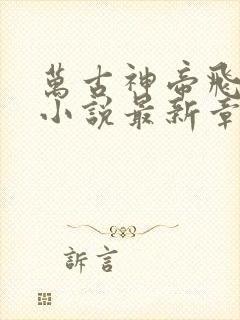 萬古神帝飛
小說最新章
訴言